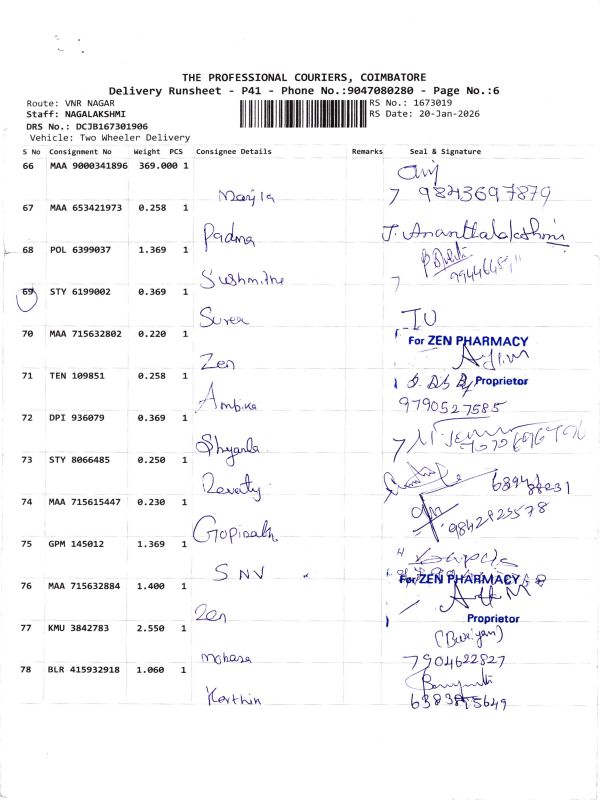 THE PROFESSIONAL COURIERS, COIMBATORE
Delivery Runsheet - P41 - Phone No.:9047080280 - Page No.:6
Route: VNR NAGAR
RS No.: 1673019
Staff: NAGALAKSHMI
RS Date: 20-Jan-2026
DRS No.: DCJB167301906
Vehicle: Two Wheeler Delivery
S No Consignment No Weight PCS Consignee Details Remarks Seal & Signature
66 MAA 9000341896 369.000 1
Manjla 9843697879
67 MAA 653421973 0.258 1
Padma J. Ananthalakshmi
68 POL 6399037 1.369 1
Sushmitha
69 STY 6199002 0.369 1
Suren
70 MAA 715632802 0.220 1
For ZEN PHARMACY
Zen
71 TEN 109851 0.258 1
Proprietor
Ambika 9790527585
72 DPI 936079 0.369 1
Shyamla
73 STY 8066485 0.250 1
Revathy
74 MAA 715615447 0.230 1
9842925578
75 GPM 145012 1.369 1
SNV
For ZEN PHARMACY
76 MAA 715632884 1.400 1
Zen
Proprietor
77 KMU 3842783 2.550 1
7904622827
78 BLR 415932918 1.060 1
Karthin